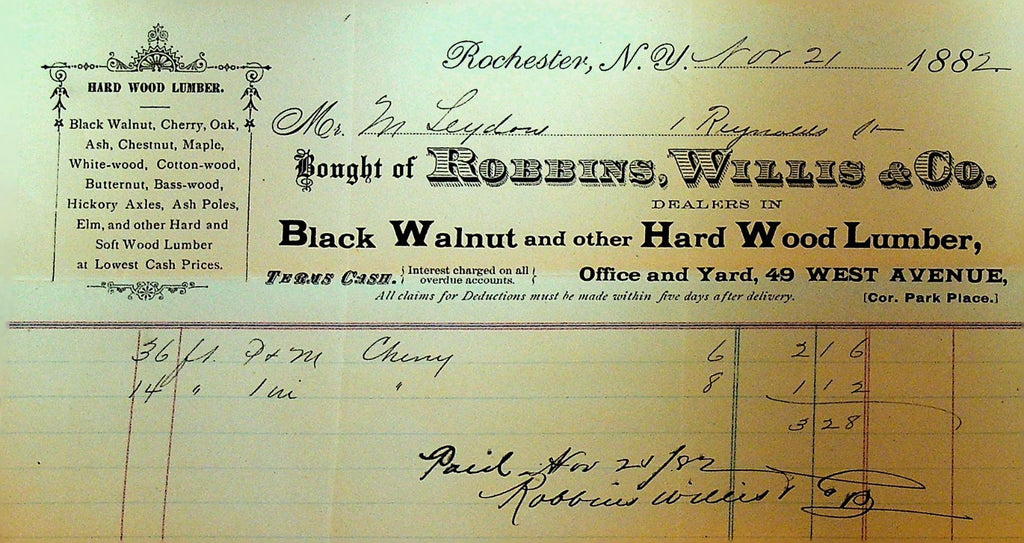 HARD WOOD LUMBER.
Black Walnut, Cherry, Oak,
Ash, Chestnut, Maple,
White-wood, Cotton-wood,
Butternut, Bass-wood,
Hickory Axles, Ash Poles,
Elm, and other Hard and
Soft Wood Lumber
at Lowest Cash Prices.
Rochester, N.Y. Nov 21 1882
Mr. M Leydon 1 Reynolds St
Bought of ROBBINS, WILLIS & Co.
DEALERS IN
Black Walnut and other Hard Wood Lumber,
TERMS CASH. {Interest charged on all overdue accounts.} Office and Yard, 49 WEST AVENUE,
All claims for Deductions must be made within five days after delivery. [Cor. Park Place.]
36 ft. D & M Cherry 6 2 16
14 " 1 in " 8 1 12
3 28
Paid Nov 21/82
Robbins Willis & Co